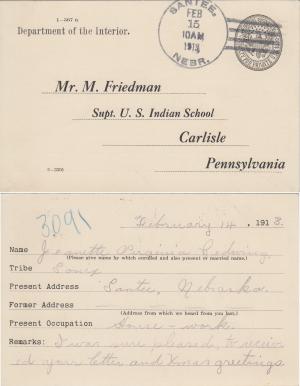 1-567 a
Department of the interior.
SANTEE,
FEB
15
10AM
1913
NEBR.
Mr. M. Friedman
Supt. U. S. Indian School
Carlisle
Pennsylvania
3091
February 14, 1913.
Name Jeanette Virginia
(Please give name by which enrolled and also present or married name.)
Tribe Soux
Present Address Santee, Nebraska.
Former Address
(Address from which we heard from you last.)
Present Occupation House-work.
Remarks: I was sure pleased, to receiv
ed your letter and Xmas greetings